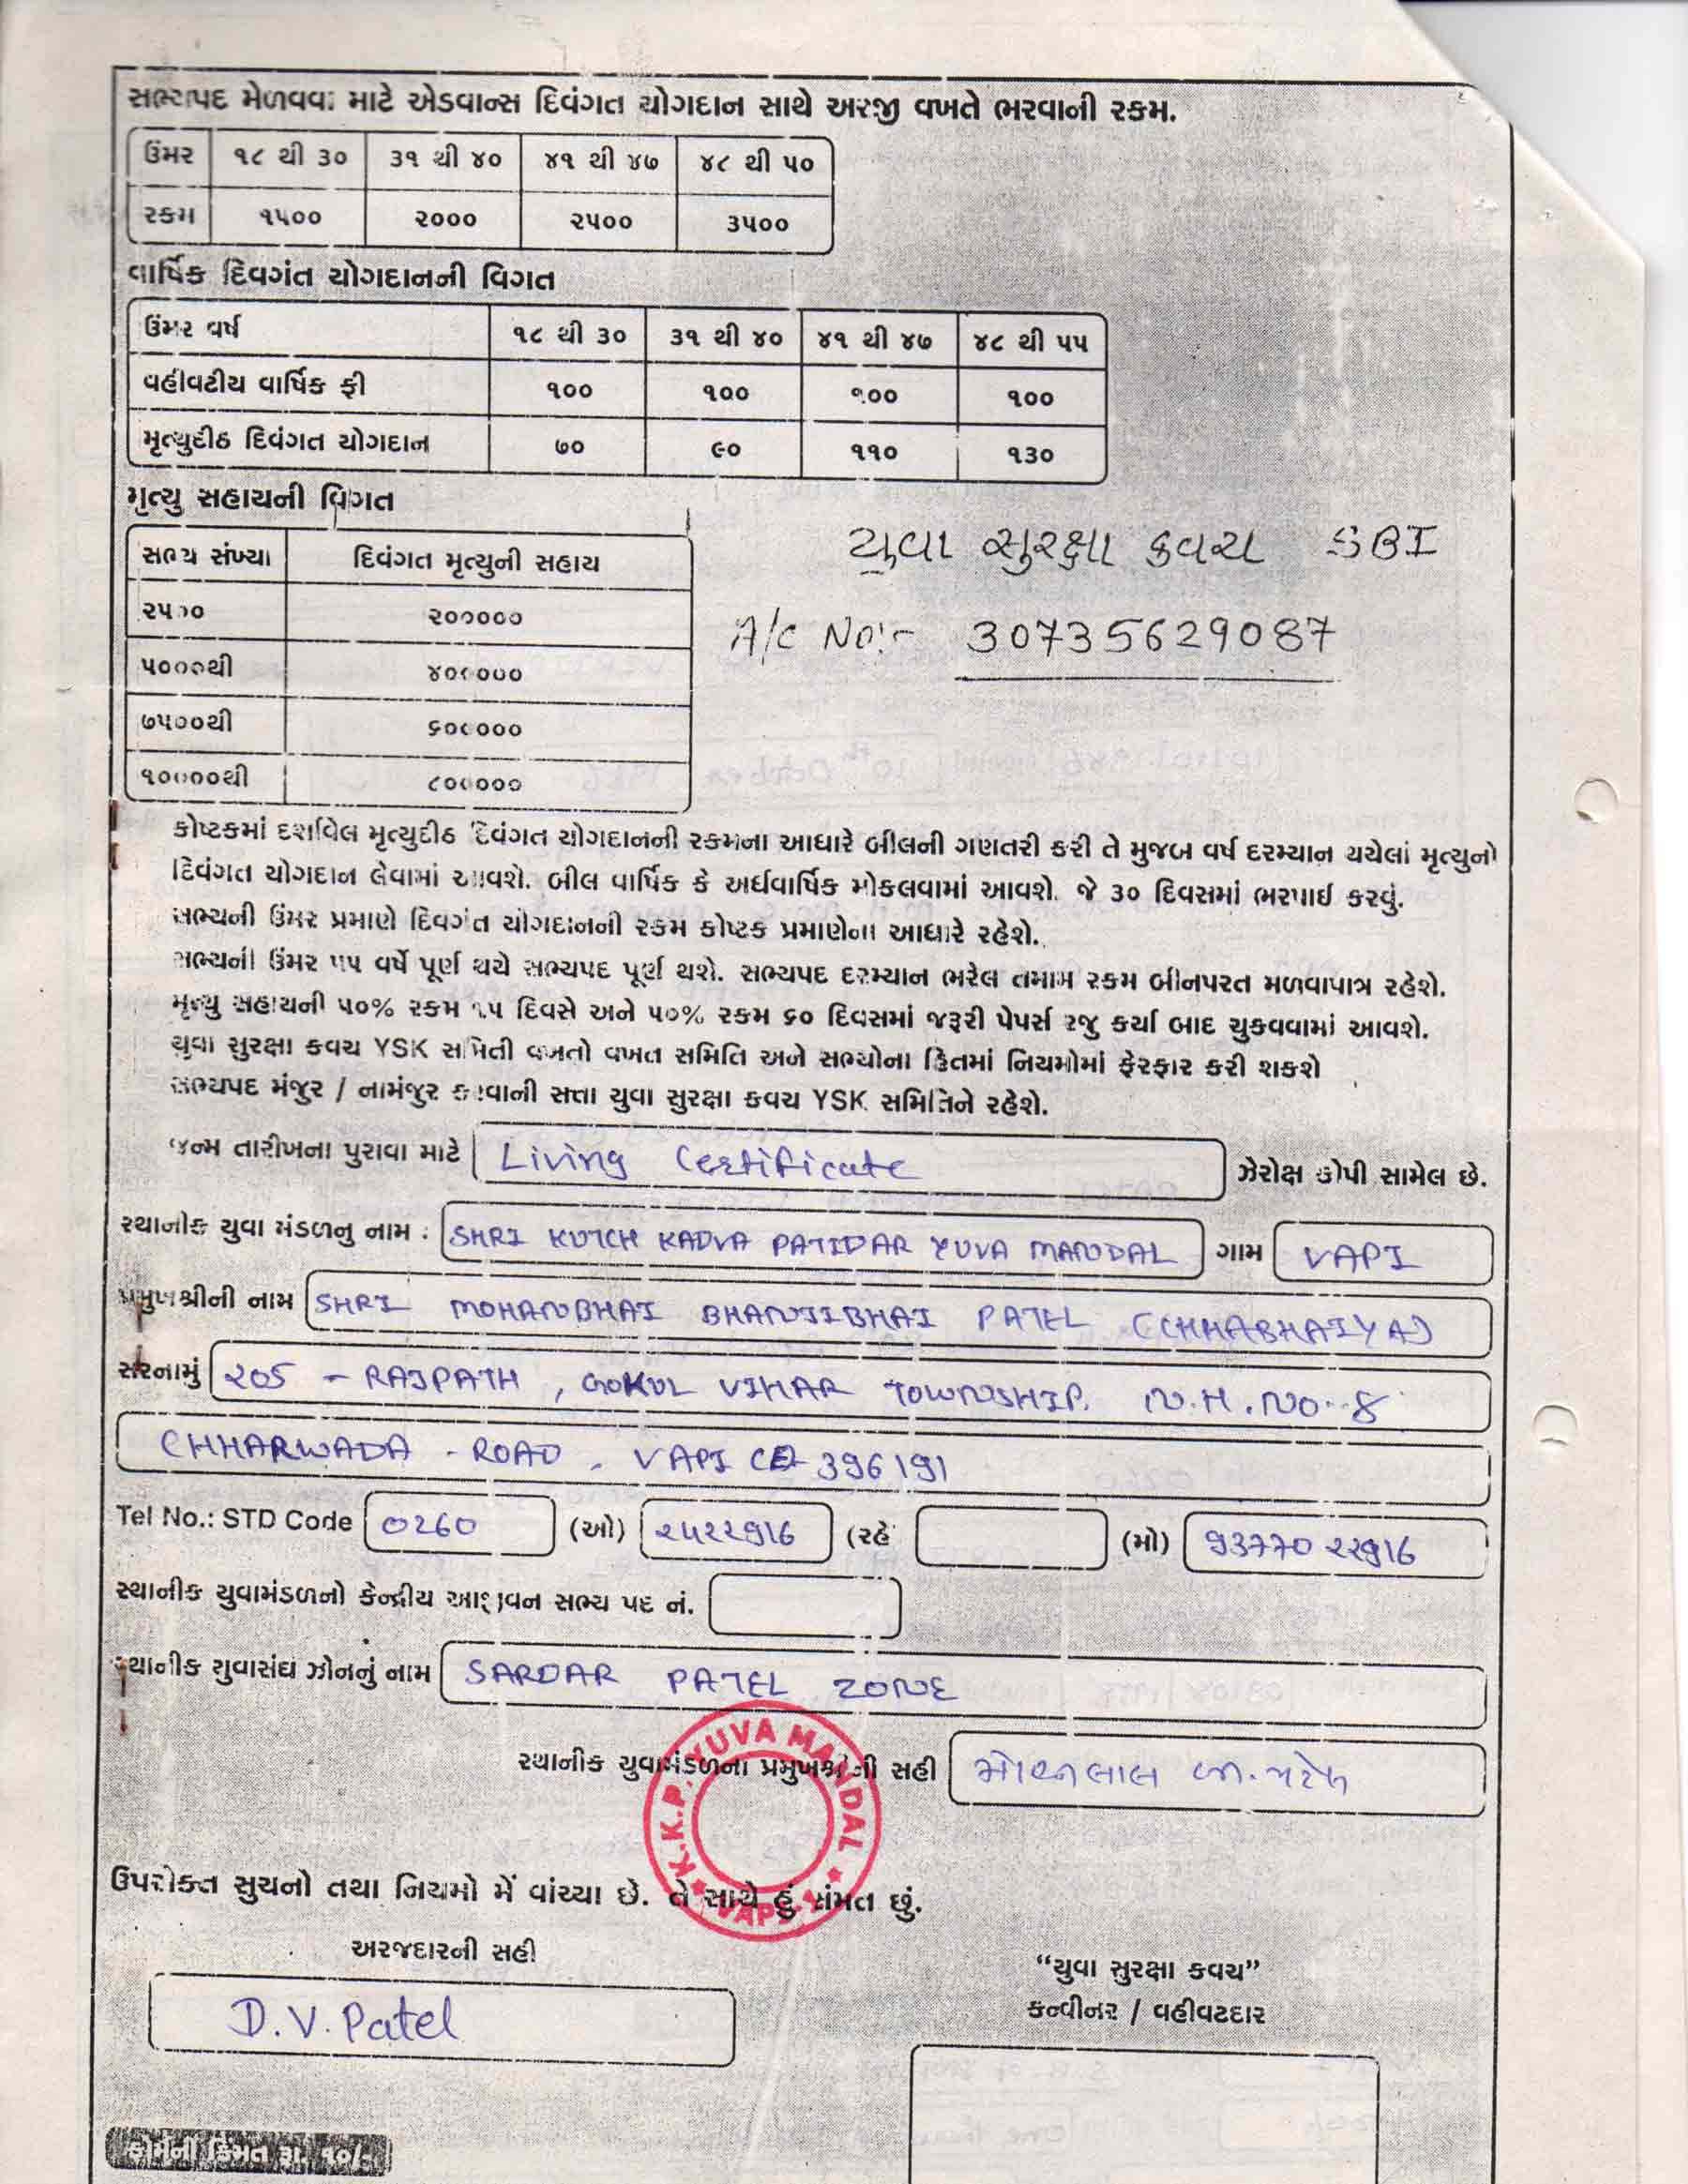 સભ્યપદ મેળવવા માટે એડવાન્સ દિવંગત યોગદાન સાથે અરજી વખતે ભરવાની રકમ.
ઉંમર ૧૮ થી ૩૦ ૩૧ થી ૪૦ ૪૧ થી ૪૭ ૪૮ થી ૫૦
રકમ ૧૫૦૦ ૨૦૦૦ ૨૫૦૦ ૩૫૦૦
વાર્ષિક દિવગંત યોગદાનની વિગત
ઉંમર વર્ષ ૧૮ થી ૩૦ ૩૧ થી ૪૦ ૪૧ થી ૪૭ ૪૮ થી ૫૫
વહીવટીય વાર્ષિક ફી ૧૦૦ ૧૦૦ ૧૦૦ ૧૦૦
મૃત્યુદીઠ દિવંગત યોગદાન ૭૦ ૯૦ ૧૧૦ ૧૩૦
મૃત્યુ સહાયની વિગત
સભ્ય સંખ્યા દિવંગત મૃત્યુની સહાય
૨૫૦૦ ૨૦૦૦૦૦
૫૦૦૦થી ૪૦૦૦૦૦
૭૫૦૦થી ૬૦૦૦૦૦
૧૦૦૦૦થી ૮૦૦૦૦૦
યુવા સુરક્ષા કવચ SBI
A/C No:- 30735629087
કોષ્ટકમાં દર્શાવેલ મૃત્યુદીઠ દિવંગત યોગદાનની રકમના આધારે બીલની ગણતરી કરી તે મુજબ વર્ષ દરમ્યાન થયેલાં મૃત્યુનો
દિવંગત યોગદાન લેવામાં આવશે. બીલ વાર્ષિક કે અર્ધવાર્ષિક મોકલવામાં આવશે. જે ૩૦ દિવસમાં ભરપાઈ કરવું.
સભ્યની ઉંમર પ્રમાણે દિવગંત યોગદાનની રકમ કોષ્ટક પ્રમાણેના આધારે રહેશે.
સભ્યની ઉંમર ૫૫ વર્ષે પૂર્ણ થયે સભ્યપદ પૂર્ણ થશે. સભ્યપદ દરમ્યાન ભરેલ તમામ રકમ બીનપરત મળવાપાત્ર રહેશે.
મૃત્યુ સહાયની ૫૦% રકમ ૧૫ દિવસે અને ૫૦% રકમ ૬૦ દિવસમાં જરૂરી પેપર્સ રજુ કર્યા બાદ ચુકવવામાં આવશે.
યુવા સુરક્ષા કવચ YSK સમિતી વખતો વખત સમિતિ અને સભ્યોના હિતમાં નિયમોમાં ફેરફાર કરી શકશે
સભ્યપદ મંજુર / નામંજુર કરવાની સત્તા યુવા સુરક્ષા કવચ YSK સમિતિને રહેશે.
જન્મ તારીખના પુરાવા માટે Living Certificate ઝેરોક્ષ કોપી સામેલ છે.
સ્થાનીક યુવા મંડળનુ નામ : SHRI KUTCH KADVA PATIDAR YUVA MANDAL ગામ VAPI
પ્રમુખશ્રીની નામ SHRI MOHANBHAI BHANJIBHAI PATEL (CHHABHAIYA)
સરનામું ૨05 - RAJPATH, GOKUL VIHAR TOWNSHIP. N.H.NO-8
CHHARWADA - ROAD - VAPI 396191
Tel No.: STD Code 0260 (ઓ) ૨૫૨૨916 (રહે (મો) 93770 ૨૨916
સ્થાનીક યુવામંડળનો કેન્દ્રીય આજીવન સભ્ય પદ નં.
સ્થાનીક યુવાસંઘ ઝોનનું નામ SARDAR PATEL ZONE
સ્થાનીક યુવામંડળના પ્રમુખશ્રીની સહી મોહનલાલ ભા. પટેલ
K.K.P. YUVA MANDAL ★ VAPI ★
ઉપરોક્ત સુચનો તથા નિયમો મેં વાંચ્યા છે. તે સાથે હું સંમત છું.
અરજદારની સહી
D.V. Patel
“યુવા સુરક્ષા કવચ”
કન્વીનર / વહીવટદાર
ફોર્મની કિંમત રૂા. ૧૦/-